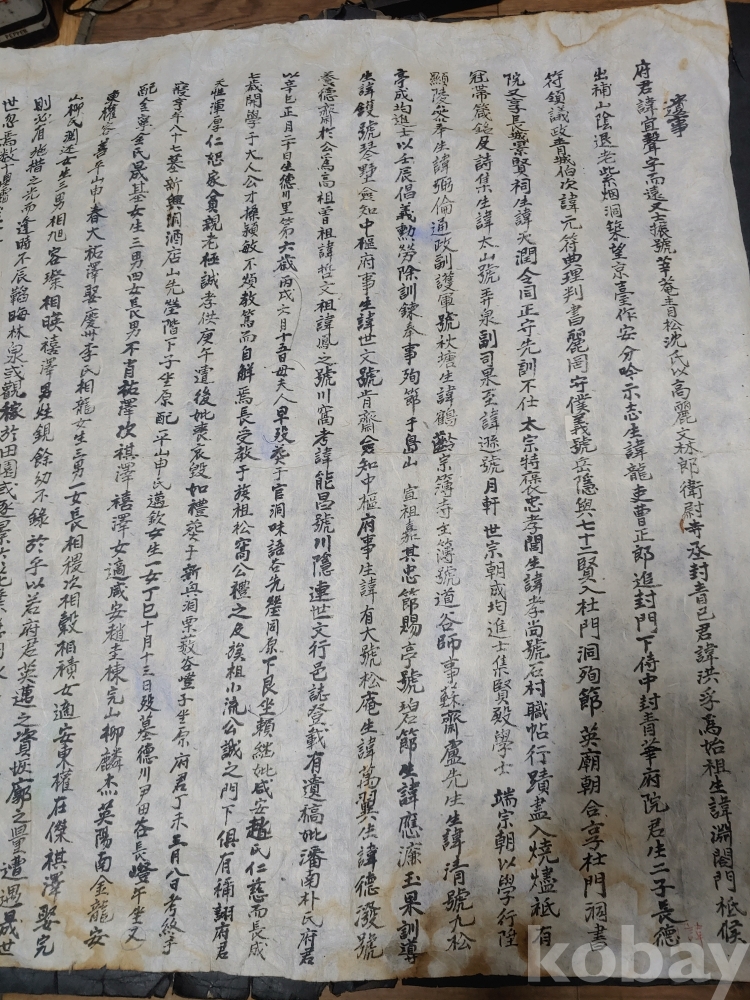 遺事
府君諱宜聲字而遠又士振號華庵青松沈氏以高麗文林郎衛尉寺丞封青己君諱洪孚爲始祖生諱淵閤門祗候
出補山陰退老紫烟洞築望京臺作安分吟示志生諱龍吏曹正郎追封門下侍中封青華府院君生二子長德
符領議政青城伯次諱元符典理判書麗罔守僕義號岳隱與七十二賢入杜門洞殉節 英廟朝合享杜門洞書
院又享 賢祠生諱天潤令同正守先訓不仕 太宗特褒忠孝閭生諱孝尚號石村職帖行蹟盡入燒燼祗有
冠帶箴銘及詩集生諱太山號弄泉副司果至諱遜號月軒 世宗朝成均進士集賢殿學士 端宗朝以學行陞
顯陵參奉生諱弼倫通政副護軍號秋塘生諱鶴齡宗簿寺主簿號道谷師事蘇齋盧先生生諱清號九松
亭成均進士以壬辰倡義勳勞除訓鍊奉事殉節于島山 宣祖嘉其忠節賜亭號珀節生諱應濂玉果訓導
生諱鑀號琴野僉知中樞府事生諱世文號肯齋僉知中樞府事生諱有大號松庵生諱萬翼生諱德潑號
養德齋於公爲高祖曾祖諱哲文祖諱鳳之號川窩考諱能昌號川隱連世文行邑誌登載有遺稿妣潘南朴氏府君
以辛巳正月二十日生德川里第六歲丙戌六月十五日母夫人早歿葬于官洞味語谷先塋同原下艮坐賴繼妣咸安趙氏仁慈而長成
七歲開學于大人公才操穎敏不煩教篤而自解焉長受教于族祖松窩公禮之及族祖小流公誠之門下俱有補詡府君
天性渾厚仁恕家貧親老極誠孝供庚午遭後妣喪哀毁如禮葬于新興洞栗數谷嶝子坐原府君丁未三月八日考終享
年八十七葬新興洞酒店山先塋階下子坐原配平山申氏邁欽女生一女丁巳十月十三日歿墓德川尹田谷長嶝午坐又
配金寧金氏箴基女生三男四女長男不肖祐澤次祺澤禧澤女適咸安趙圭棟完山柳麟杰英陽南金龍安
東權 平山申春大祐澤娶慶州李氏相龍女生三男一女長相禝次相轂相積女適安東權在傑祺澤娶完
山柳氏淵迋女生三男相旭 相暎禧澤男 鋧餘幼不錄於乎以若府君英邁之資恢廓之量遭遇晟世
則必有地揩之光而逢時不辰韜晦林泉或觀稼於田園或逐
世忽焉數十